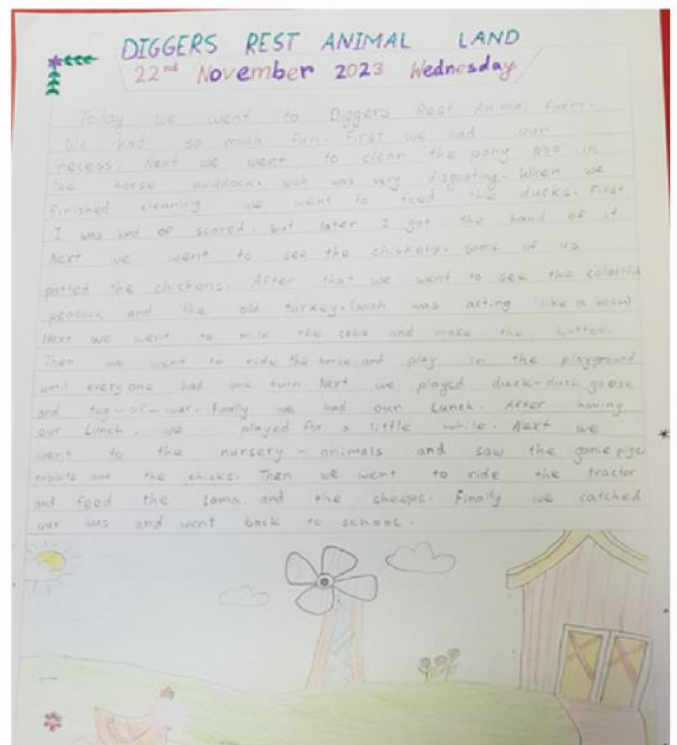 DIGGERS REST ANIMAL LAND
22nd November 2023 Wednesday
Today we went to Diggers Rest Animal farm.
We had so much fun. First we had our
recess. Next we went to clean the pony poo in
the horse paddock. wich was very disgusting. When we
finished cleaning we went to feed the ducks. First
I was kind of scared. but later I got the hand of it
Next we went to see the chickens. some of us
patted the chickens. After that we went to see the colorful
peacock and the old turkey. (wich was acting like a boss)
Next we went to milk the cows and make the butter.
Then we went to ride the horse and play in the playground
until everyone had one turn. Next we played duck-duck goose
and tug-of-war. Finally we had our Lunch. After having
our Lunch, we played for a little while. Next we
went to the nursery-animals and saw the
rabbits and the chicks. Then we went to ride the tractor
and feed the Lama. and the sheeps. Finally we catched
our bus and went back to school.